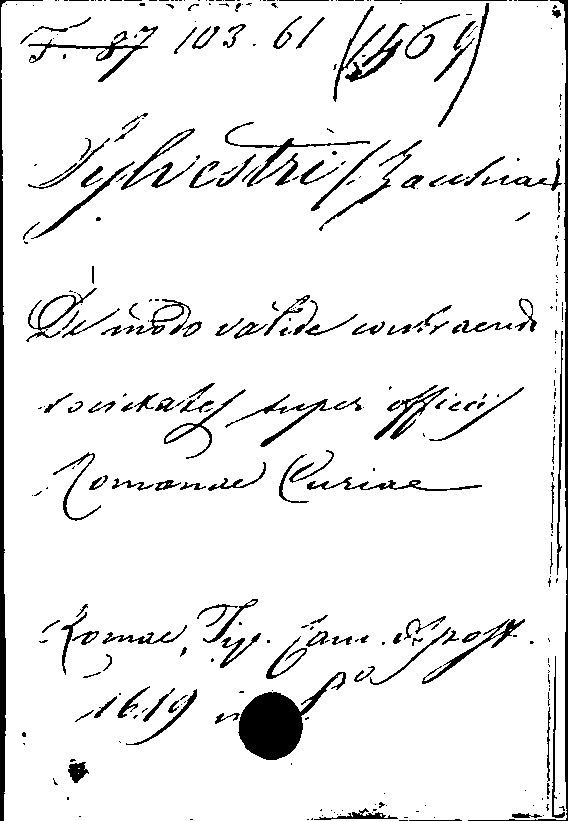 F. 87 103. 61 (1569)
Sylvestri /Zacchiae
De modo valide contraendi
societates super officiis
Romanae Curiae
Romae, Tip. Cam. Apost.
1619 in f°